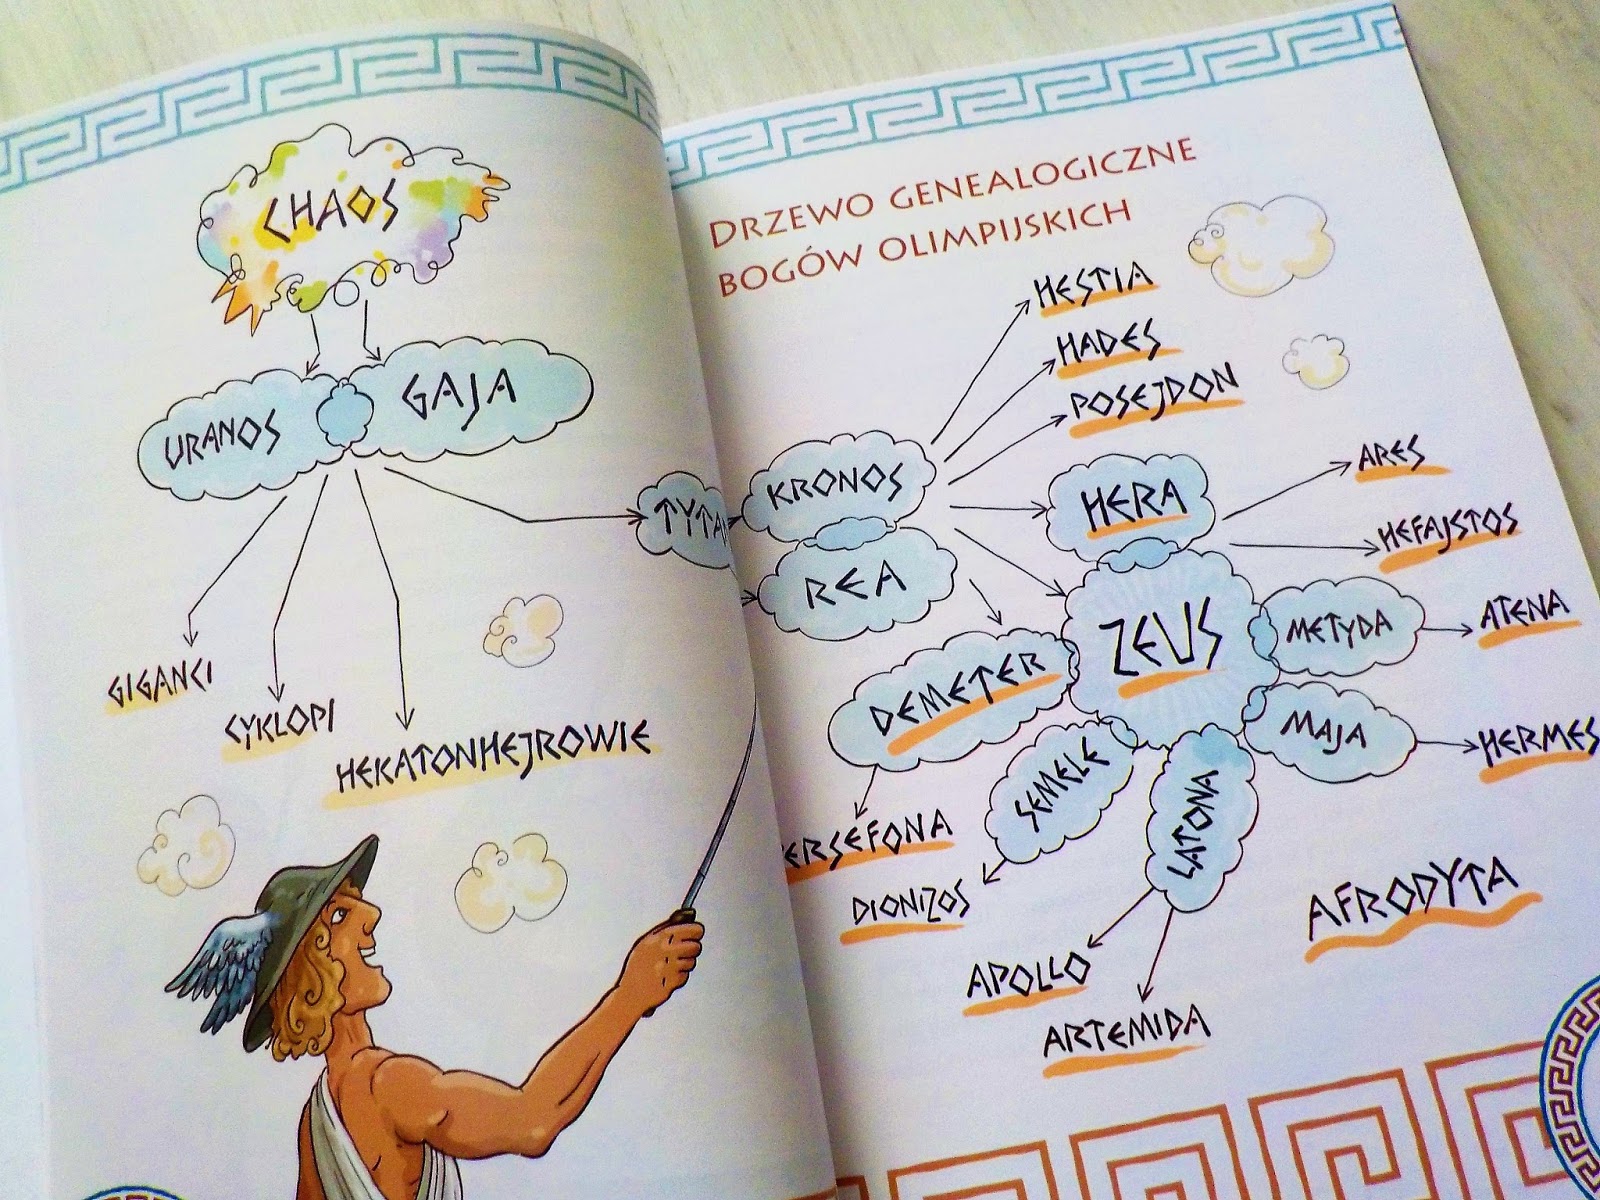 CHAOS
URANOS
GAJA
GIGANCI
CYKLOPI
HEKATONHEJROWIE
DRZEWO GENEALOGICZNE
BOGÓW OLIMPIJSKICH
KRONOS
REA
HESTIA
HADES
POSEJDON
HERA
ZEUS
DEMETER
ARES
HEFAJSTOS
METYDA
ATENA
MAJA
HERMES
SEMELE
LATONA
DIONIZOS
APOLLO
ARTEMIDA
AFRODYTA